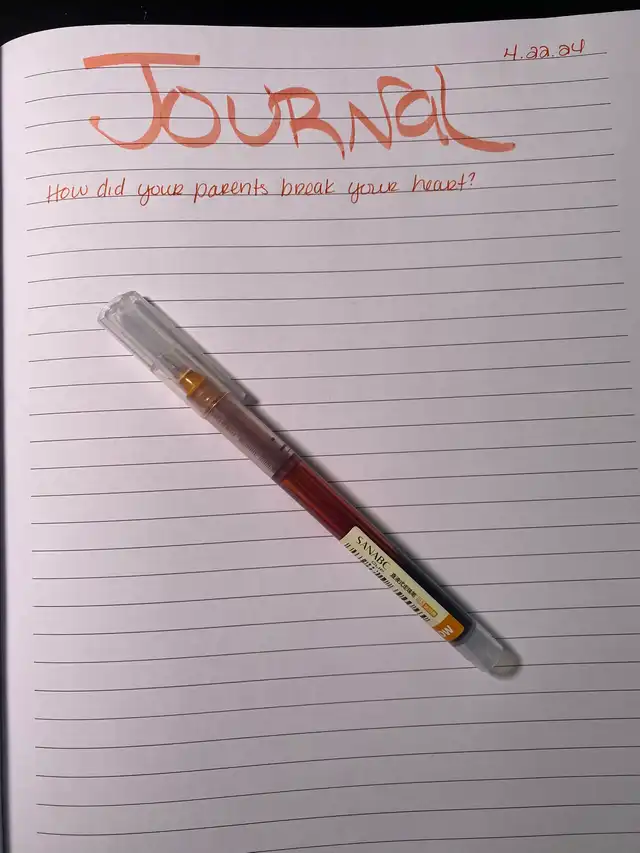 4.22.24
JOURNAL
How did your parents break your heart?
SANABC